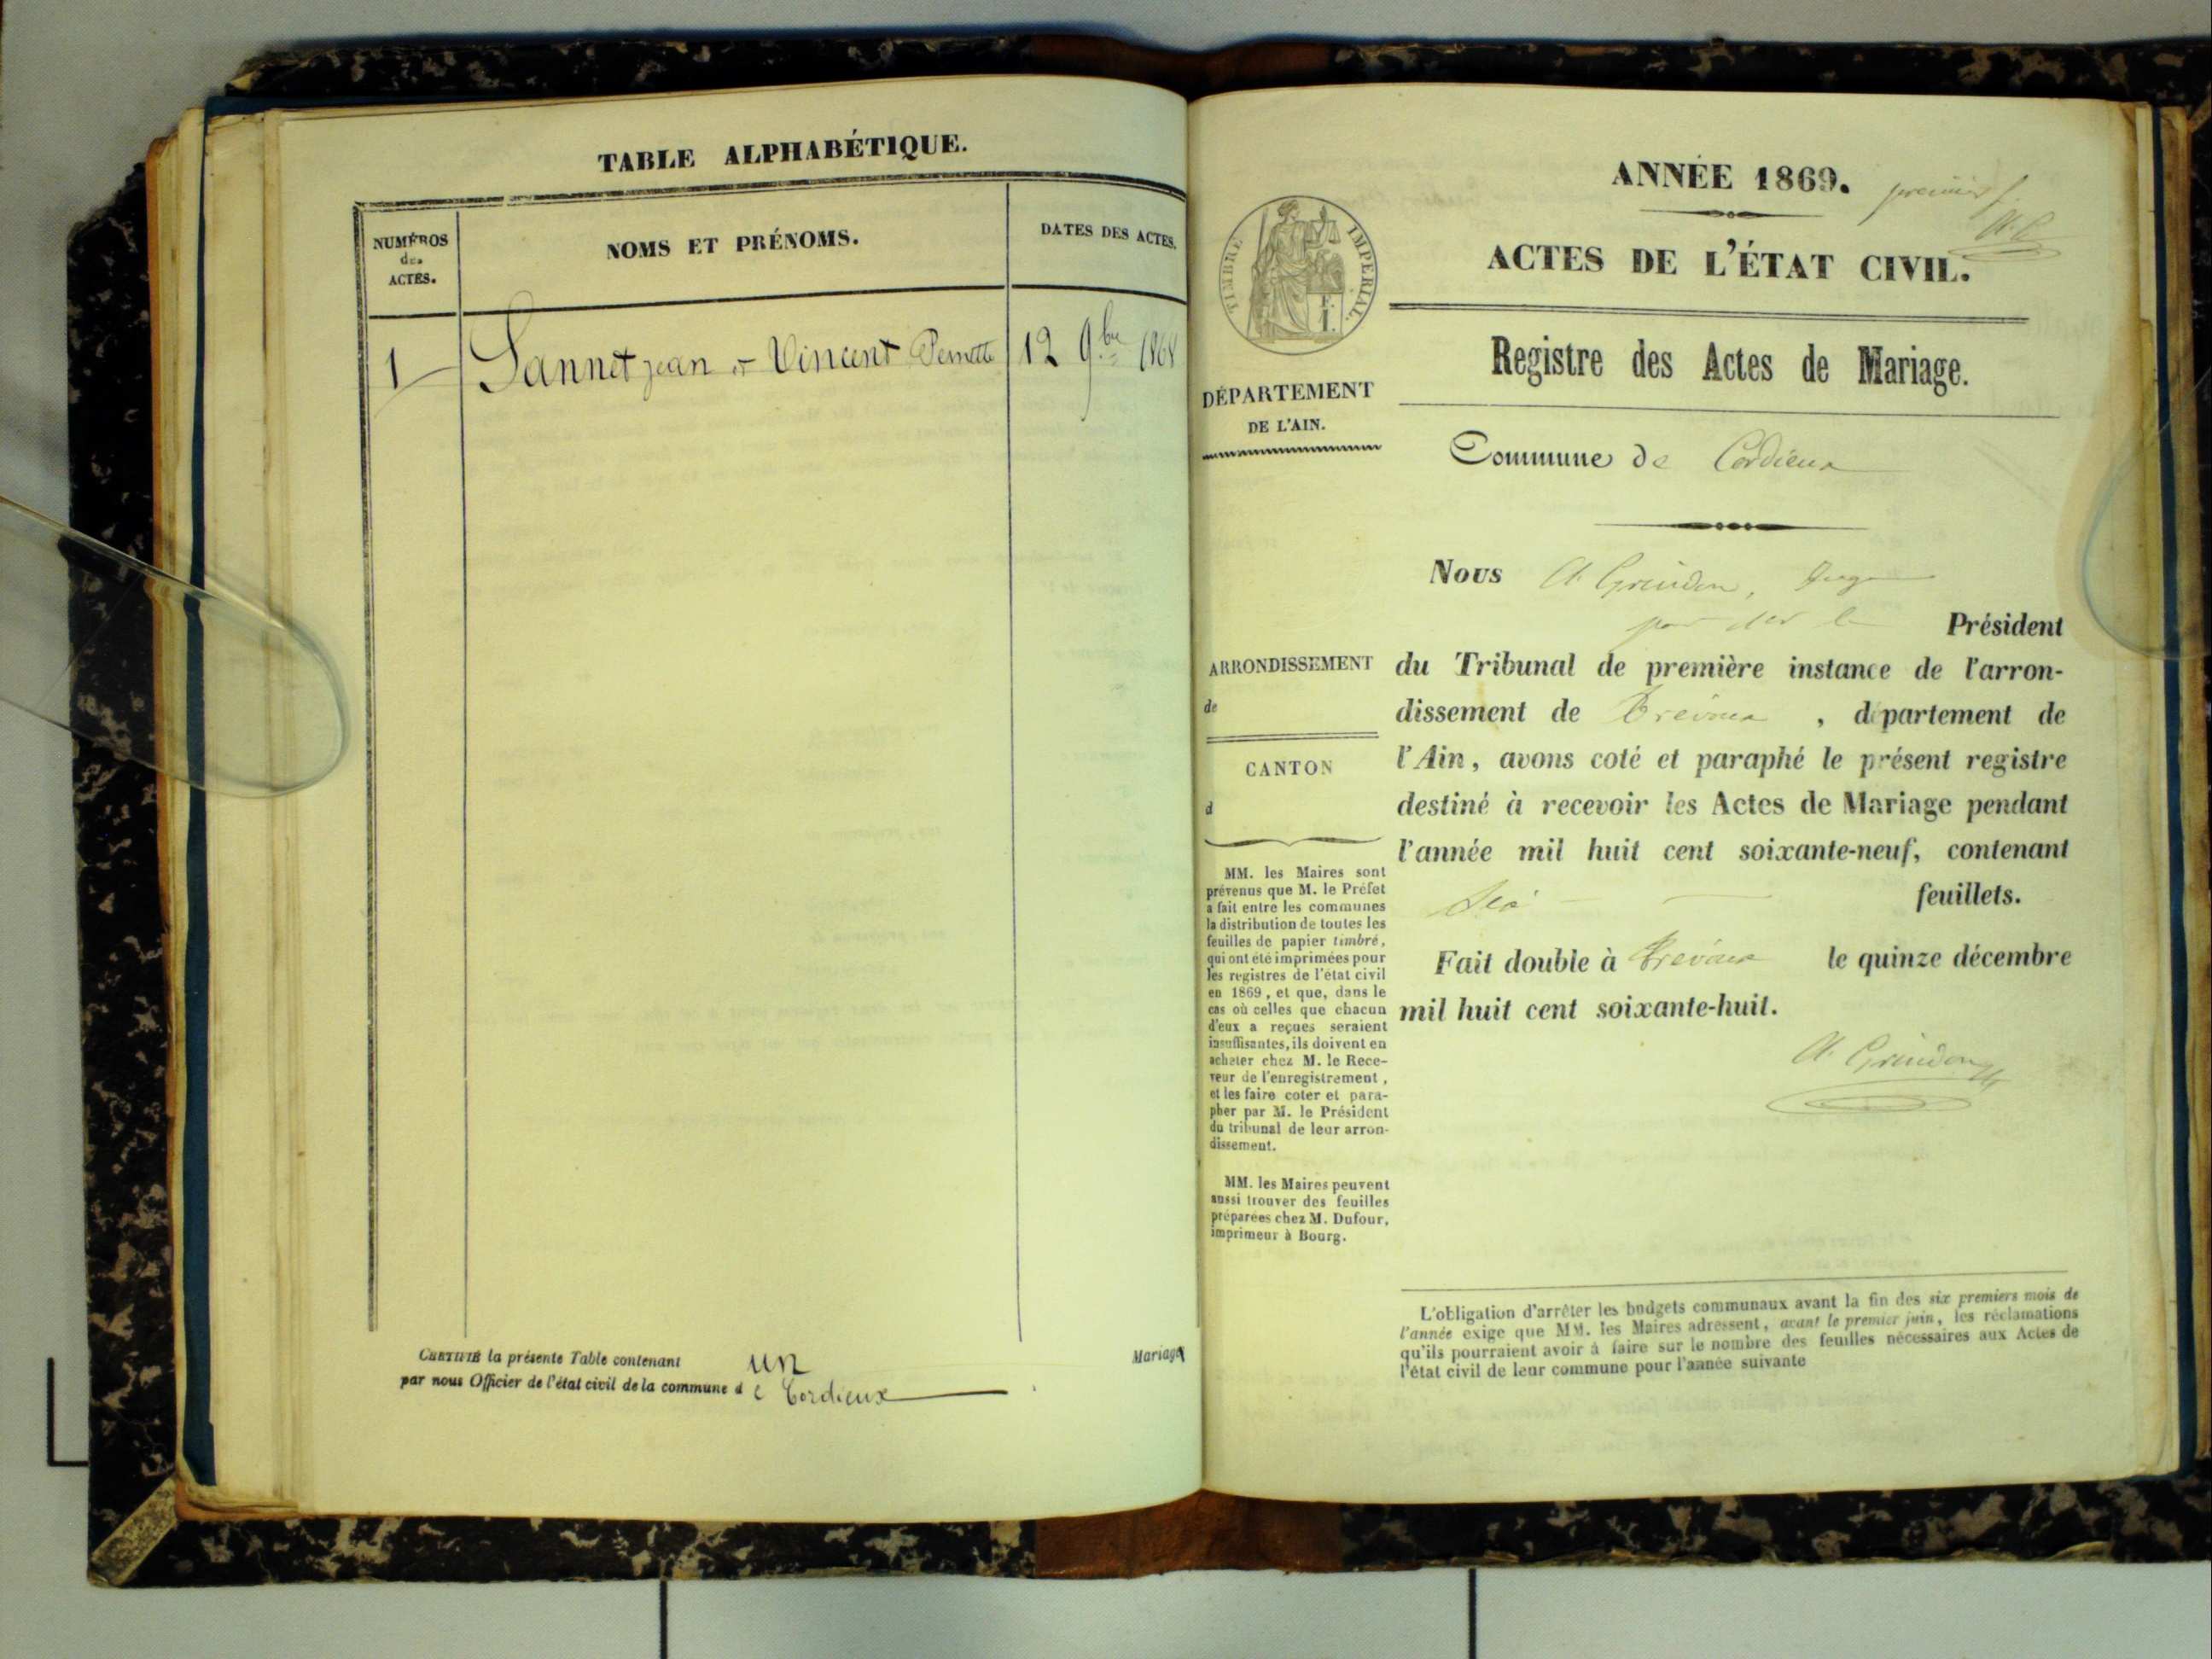 TABLE ALPHABÉTIQUE.
NUMÉROS
des
ACTES.
NOMS ET PRÉNOMS.
DATES DES ACTES.
1
Sannet jean et Vincent Pernette
12 9bre 1868
CERTIFIÉ la présente Table contenant un Mariage
par nous Officier de l'état civil de la commune de Cordieux
ANNÉE 1869.
premier f.
ACTES DE L'ÉTAT CIVIL.
TIMBRE IMPÉRIAL.
Registre des Actes de Mariage.
DÉPARTEMENT
DE L'AIN.
Commune de Cordieux
Nous A. Grindon, Juge
pour le Président
ARRONDISSEMENT
de
CANTON
d
du Tribunal de première instance de l'arron-
dissement de Trévoux, département de
l'Ain, avons coté et paraphé le présent registre
destiné à recevoir les Actes de Mariage pendant
l'année mil huit cent soixante-neuf, contenant
feuillets.
Fait double à Trévoux le quinze décembre
mil huit cent soixante-huit.
A. Grindon
MM. les Maires sont
prévenus que M. le Préfet
a fait entre les communes
la distribution de toutes les
feuilles de papier timbré,
qui ont été imprimées pour
les registres de l'état civil
en 1869, et que, dans le
cas où celles que chacun
d'eux a reçues seraient
insuffisantes, ils doivent en
acheter chez M. le Rece-
veur de l'enregistrement,
et les faire coter et para-
pher par M. le Président
du tribunal de leur arron-
dissement.
MM. les Maires peuvent
aussi trouver des feuilles
préparées chez M. Dufour,
imprimeur à Bourg.
L'obligation d'arrêter les budgets communaux avant la fin des six premiers mois de
l'année exige que MM. les Maires adressent, avant le premier juin, les réclamations
qu'ils pourraient avoir à faire sur le nombre des feuilles nécessaires aux Actes de
l'état civil de leur commune pour l'année suivante